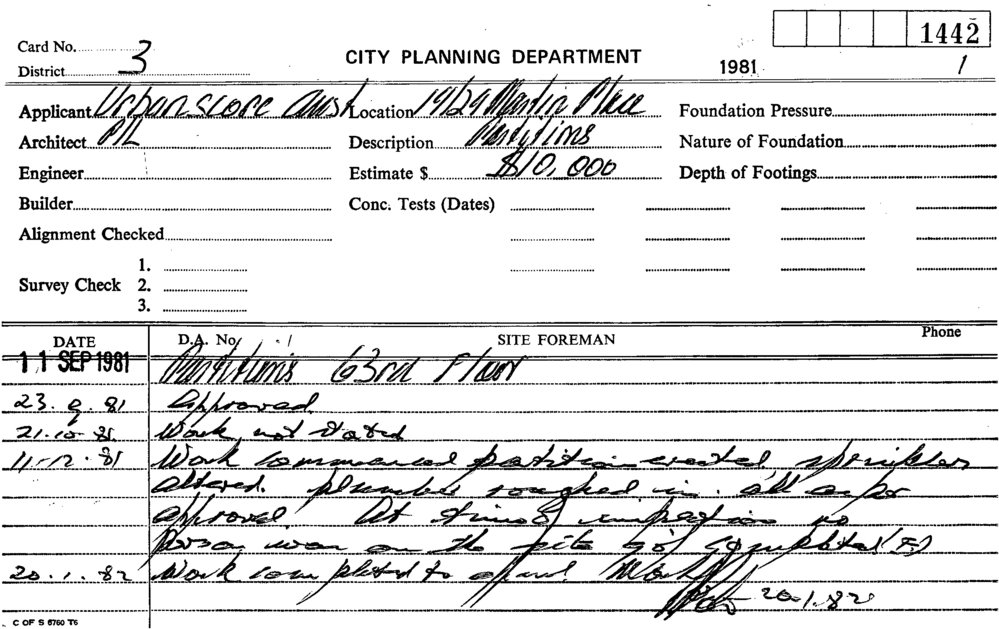 1442
Card No. 3
CITY PLANNING DEPARTMENT
District
1981
1
Applicant Urbanscore Aust Location 19/29 Martin Place Foundation Pressure
Architect P/L Description Partitions Nature of Foundation
Engineer Estimate $ $10,000 Depth of Footings
Builder Conc. Tests (Dates)
Alignment Checked
1.
Survey Check 2.
3.
DATE D.A. No. SITE FOREMAN Phone
11 SEP 1981 Partitions 63rd Floor
23.9.81 Approved
21.10.81 Work not stated
11.12.81 Work commenced partition erected, sprinkler
altered. plumber roughed in. all as per
approval. At time of inspection no
person was on the site 90% completed (F.)
20.1.82 Work completed to
20.1.82
C OF S 6760 T6